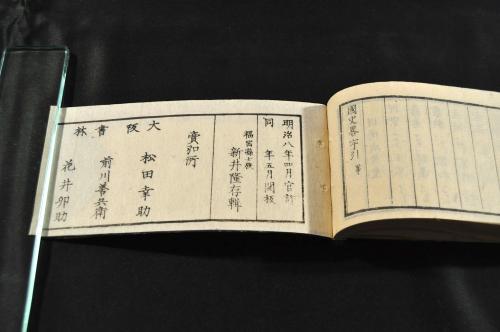 國史畧字引 畢
明治八年四月官許
同 年五月開板
福岡縣士族
新井隆存輯
賣弘所
大阪書林
松田幸助
前川善兵衛
花井卯助